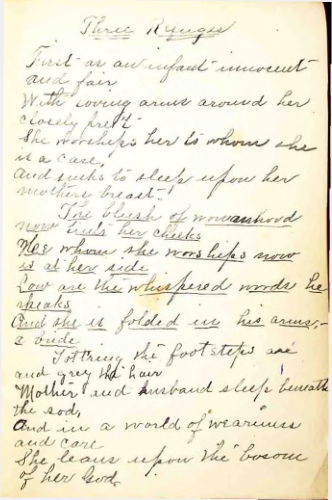 Three Refuges
First as an infant innocent
and fair
With loving arms around her
closely pres't
She worships her to whom she
is a care,
And sinks to sleep upon her
mothers breast.
The blush of womanhood
now tints her cheeks
He whom she worships now
is at her side
Low are the whispered words he
speaks
And she is folded in his arms,-
a bride
Tottring the footsteps are
and grey the hair
Mother and husband sleep beneath
the sod,
And in a world of weariness
and care
She leans upon the bosom
of her God.